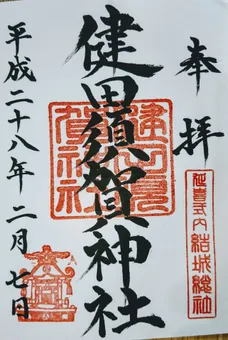 奉拝
延喜式内 結城總社
健田須賀神社
健田須賀神社
平成二十八年二月七日